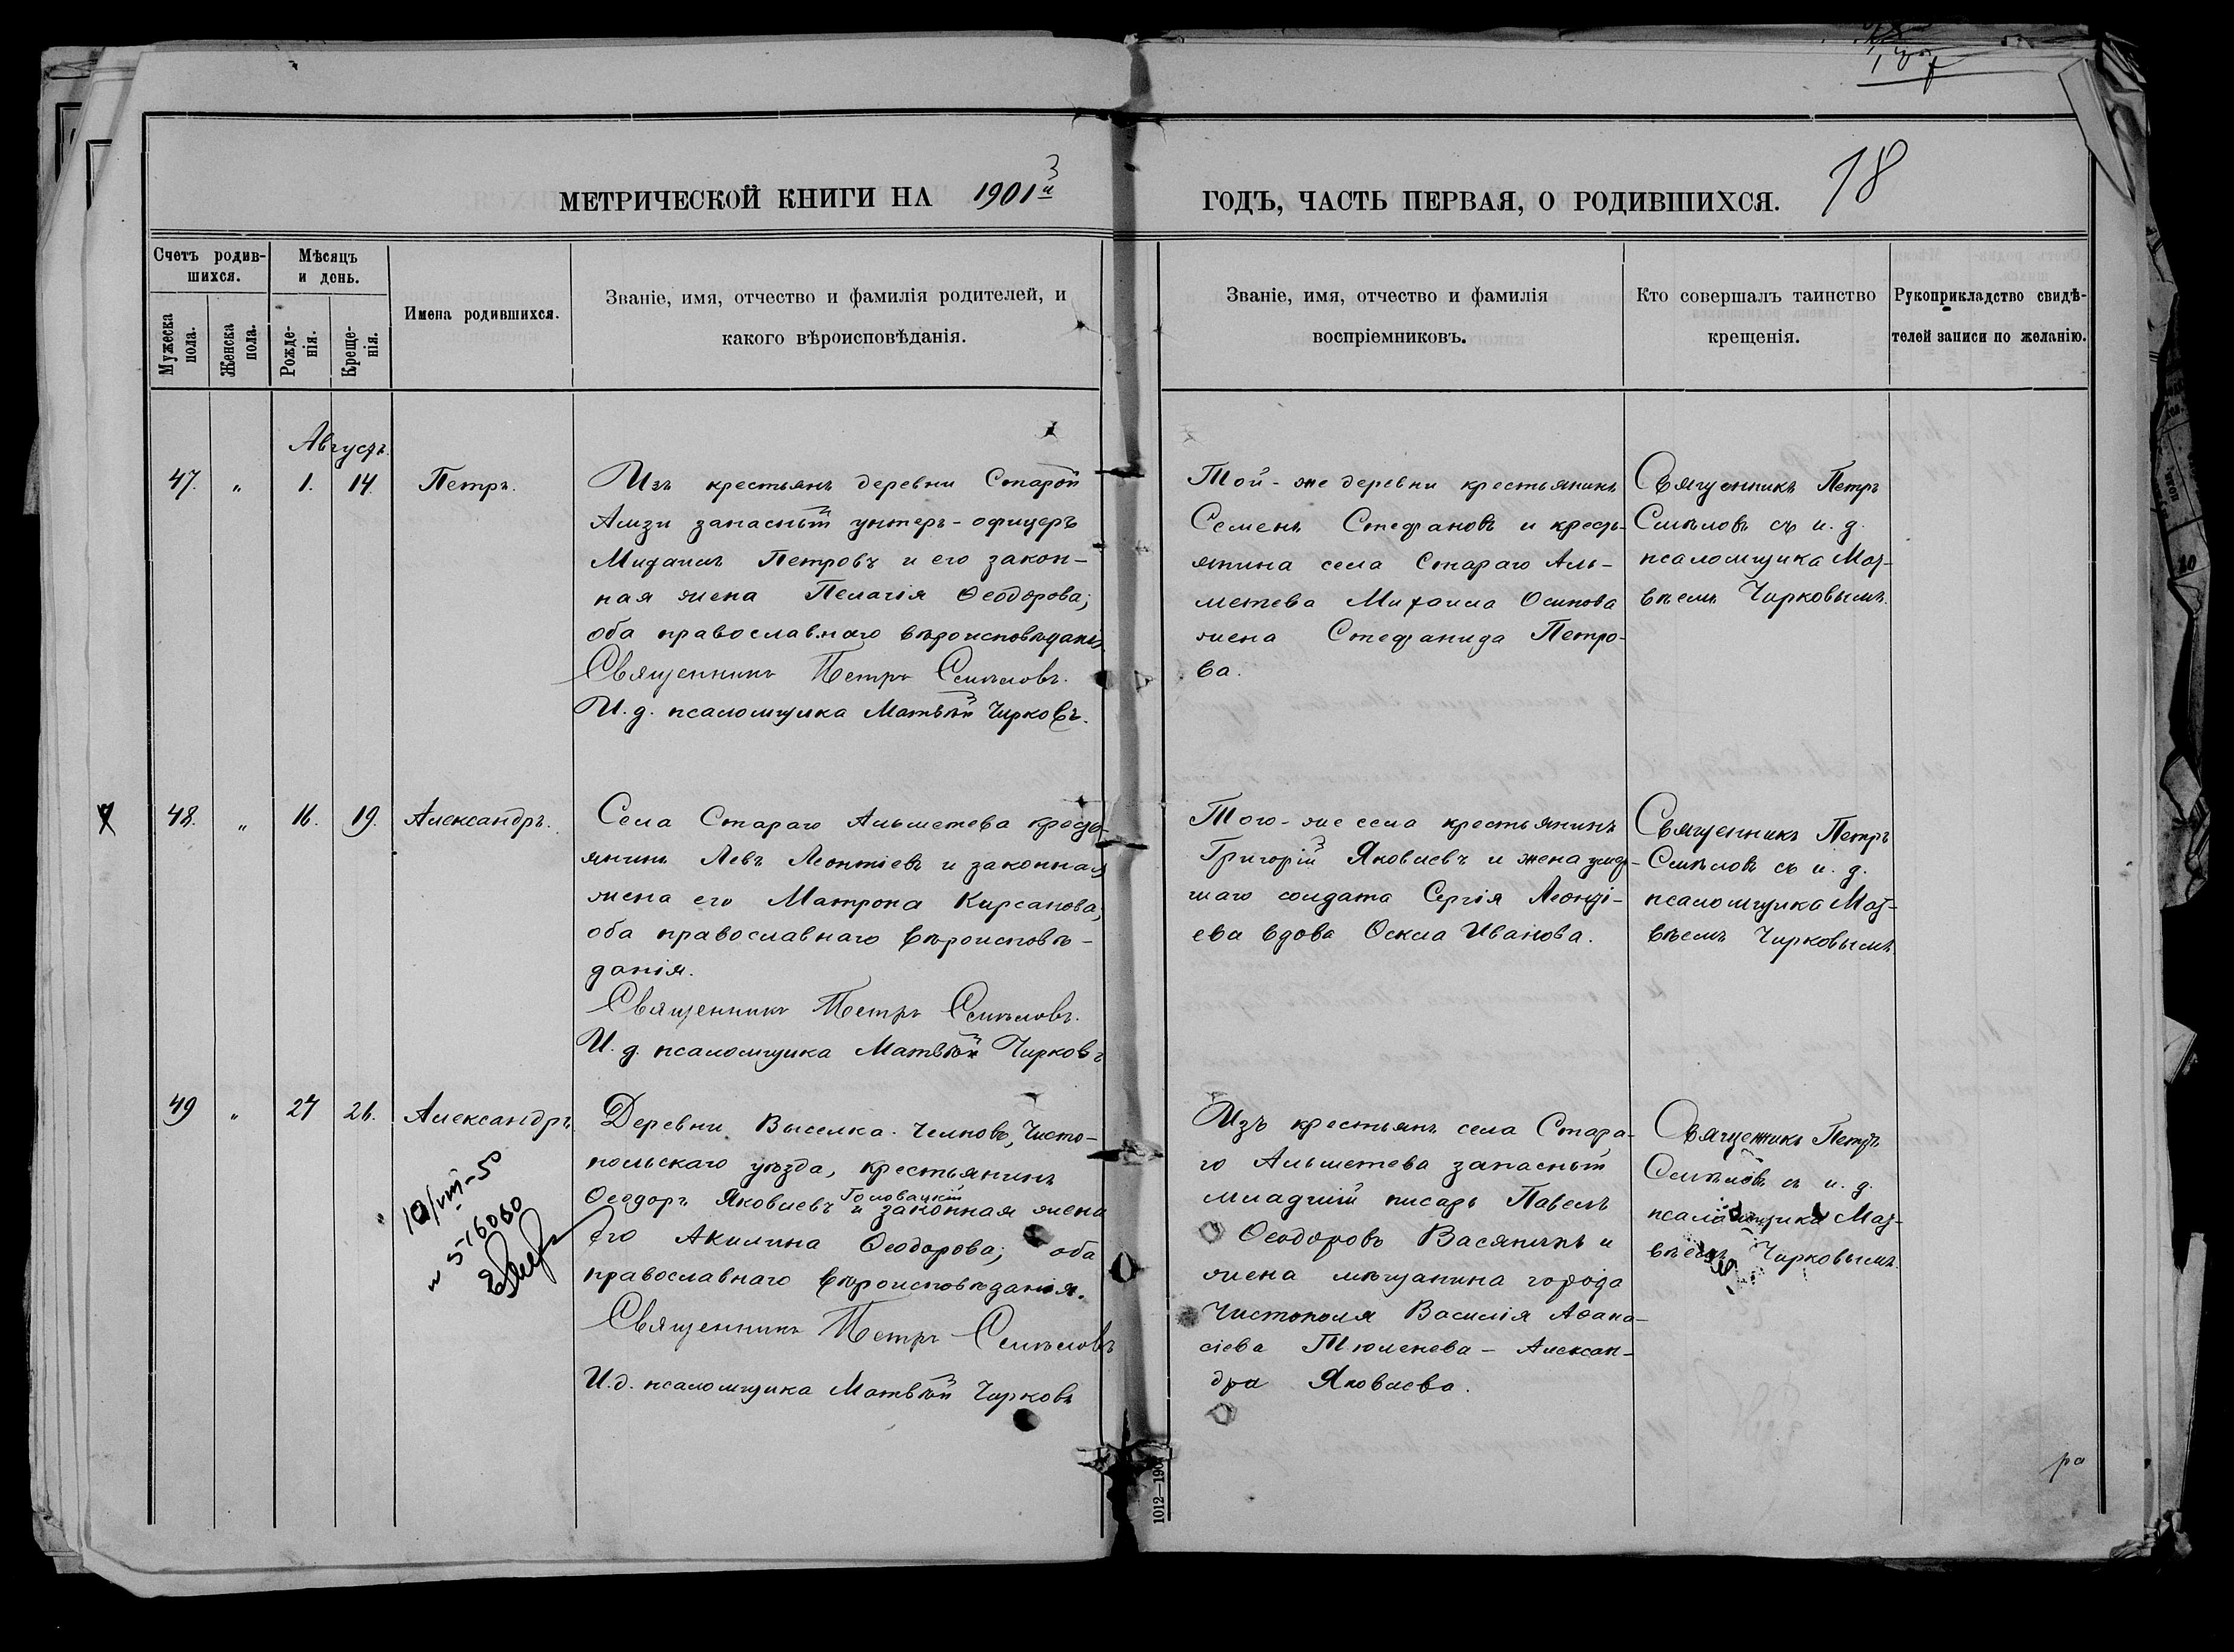 МЕТРИЧЕСКОЙ КНИГИ НА 1901й
3
ГОДЪ, ЧАСТЬ ПЕРВАЯ, О РОДИВШИХСЯ.
18
Счетъ родив-
шихся.
Мужеска
пола.
Женска
пола.
Мѣсяцъ
и день.
Рожде-
нія.
Креще-
нія.
Имена родившихся.
Званіе, имя, отчество и фамилія родителей, и
какого вѣроисповѣданія.
Званіе, имя, отчество и фамилія
воспріемниковъ.
Кто совершалъ таинство
крещенія.
Рукоприкладство свидѣ-
телей записи по желанію.
Августъ.
47. " 1. 14. Петръ.
Изъ крестьянъ деревни Старой
Амзи запасный унтеръ-офицеръ
Михаилъ Петровъ и его закон-
ная жена Пелагія Ѳеодорова;
оба православнаго вѣроисповѣданія.
Священникъ Петръ Смѣловъ.
И. д. псаломщика Матвѣй Чирковъ.
Той-же деревни крестьянинъ
Семенъ Стефановъ и кресть-
янина села Стараго Аль-
метева Михаила Осипова
жена Стефанида Петро-
ва.
Священникъ Петръ
Смѣловъ съ и. д.
псаломщика Мат-
вѣемъ Чирковымъ.
48. " 16. 19. Александръ.
Села Стараго Альметева кресть-
янинъ Левъ Леонтіевъ и законная
жена его Матрона Кирсанова,
оба православнаго вѣроисповѣ-
данія.
Священникъ Петръ Смѣловъ.
И. д. псаломщика Матвѣй Чирковъ
Того-же села крестьянинъ
Григорій Яковлевъ и жена умер-
шаго солдата Сергія Леонті-
ева вдова Ѳекла Иванова.
Священникъ Петръ
Смѣловъ съ и. д.
псаломщика Мат-
вѣемъ Чирковымъ.
49 " 24 26. Александръ
Деревни Выселка Челновъ, Чисто-
польскаго уѣзда, крестьянинъ
Ѳеодоръ Яковлевъ Головацкій и законная жена
его Акилина Ѳеодорова; оба
православнаго вѣроисповѣданія.
Священникъ Петръ Смѣловъ
И. д. псаломщика Матвѣй Чирковъ
Изъ крестьянъ села Стара-
го Альметева запасный
младшій писарь Павелъ
Ѳеодоровъ Васянинъ и
жена мѣщанина города
Чистополя Василія Аѳана-
сіева Тюленева - Алексан-
дра Яковлева.
Священникъ Петръ
Смѣловъ съ и. д.
псаломщика Мат-
вѣемъ Чирковымъ.
10/VIII-50
1012—190
ра